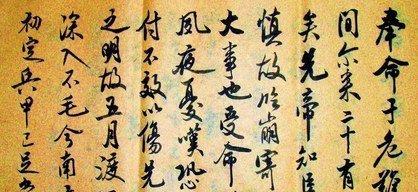 奉命于危難
间尔来二十有
矣先帝知臣
慎故临崩寄
大事也受命
夙夜憂嘆恐
付不效以傷先
之明故五月渡
深入不毛今南
初定兵甲已足